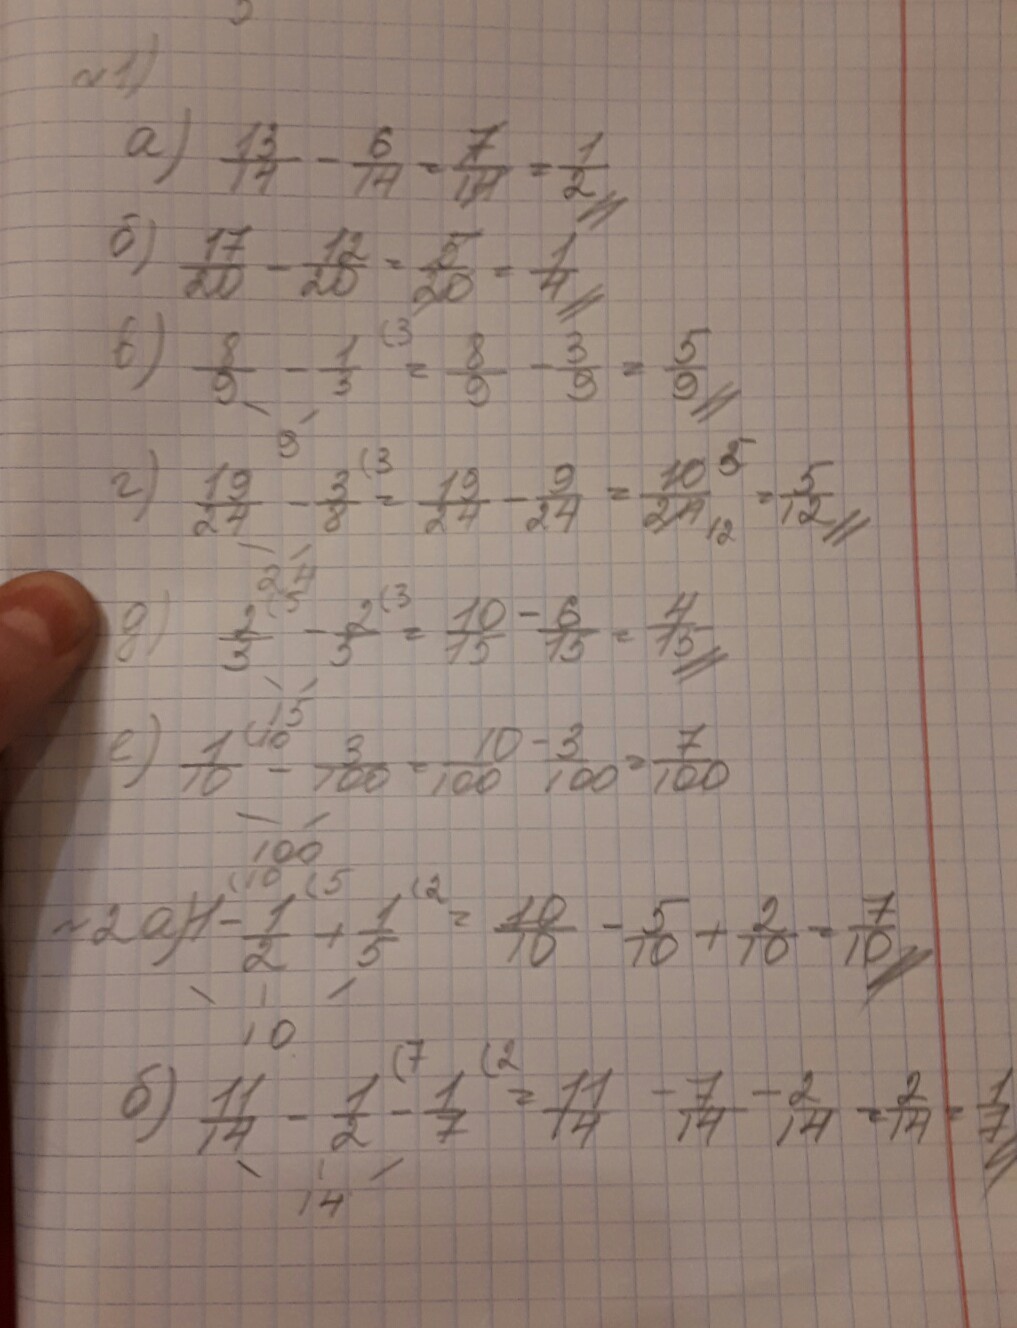 №1)
а) 13/14 - 6/14 = 7/14 = 1/2
б) 17/20 - 12/20 = 5/20 = 1/4
в) 8/9 - 1/3 (3 = 8/9 - 3/9 = 5/9
9
г) 19/24 - 3/8 (3 = 19/24 - 9/24 = 10/24 5 12 = 5/12
24
д) 2/3 (5 - 2/5 (3 = 10/15 - 6/15 = 4/15
15
е) 1/10 (10 - 3/100 = 10/100 - 3/100 = 7/100
100
№2 а) 1 (10 - 1/2 (5 + 1/5 (2 = 10/10 - 5/10 + 2/10 = 7/10
10
б) 11/14 - 1/2 (7 - 1/7 (2 = 11/14 - 7/14 - 2/14 = 2/14 = 1/7
14